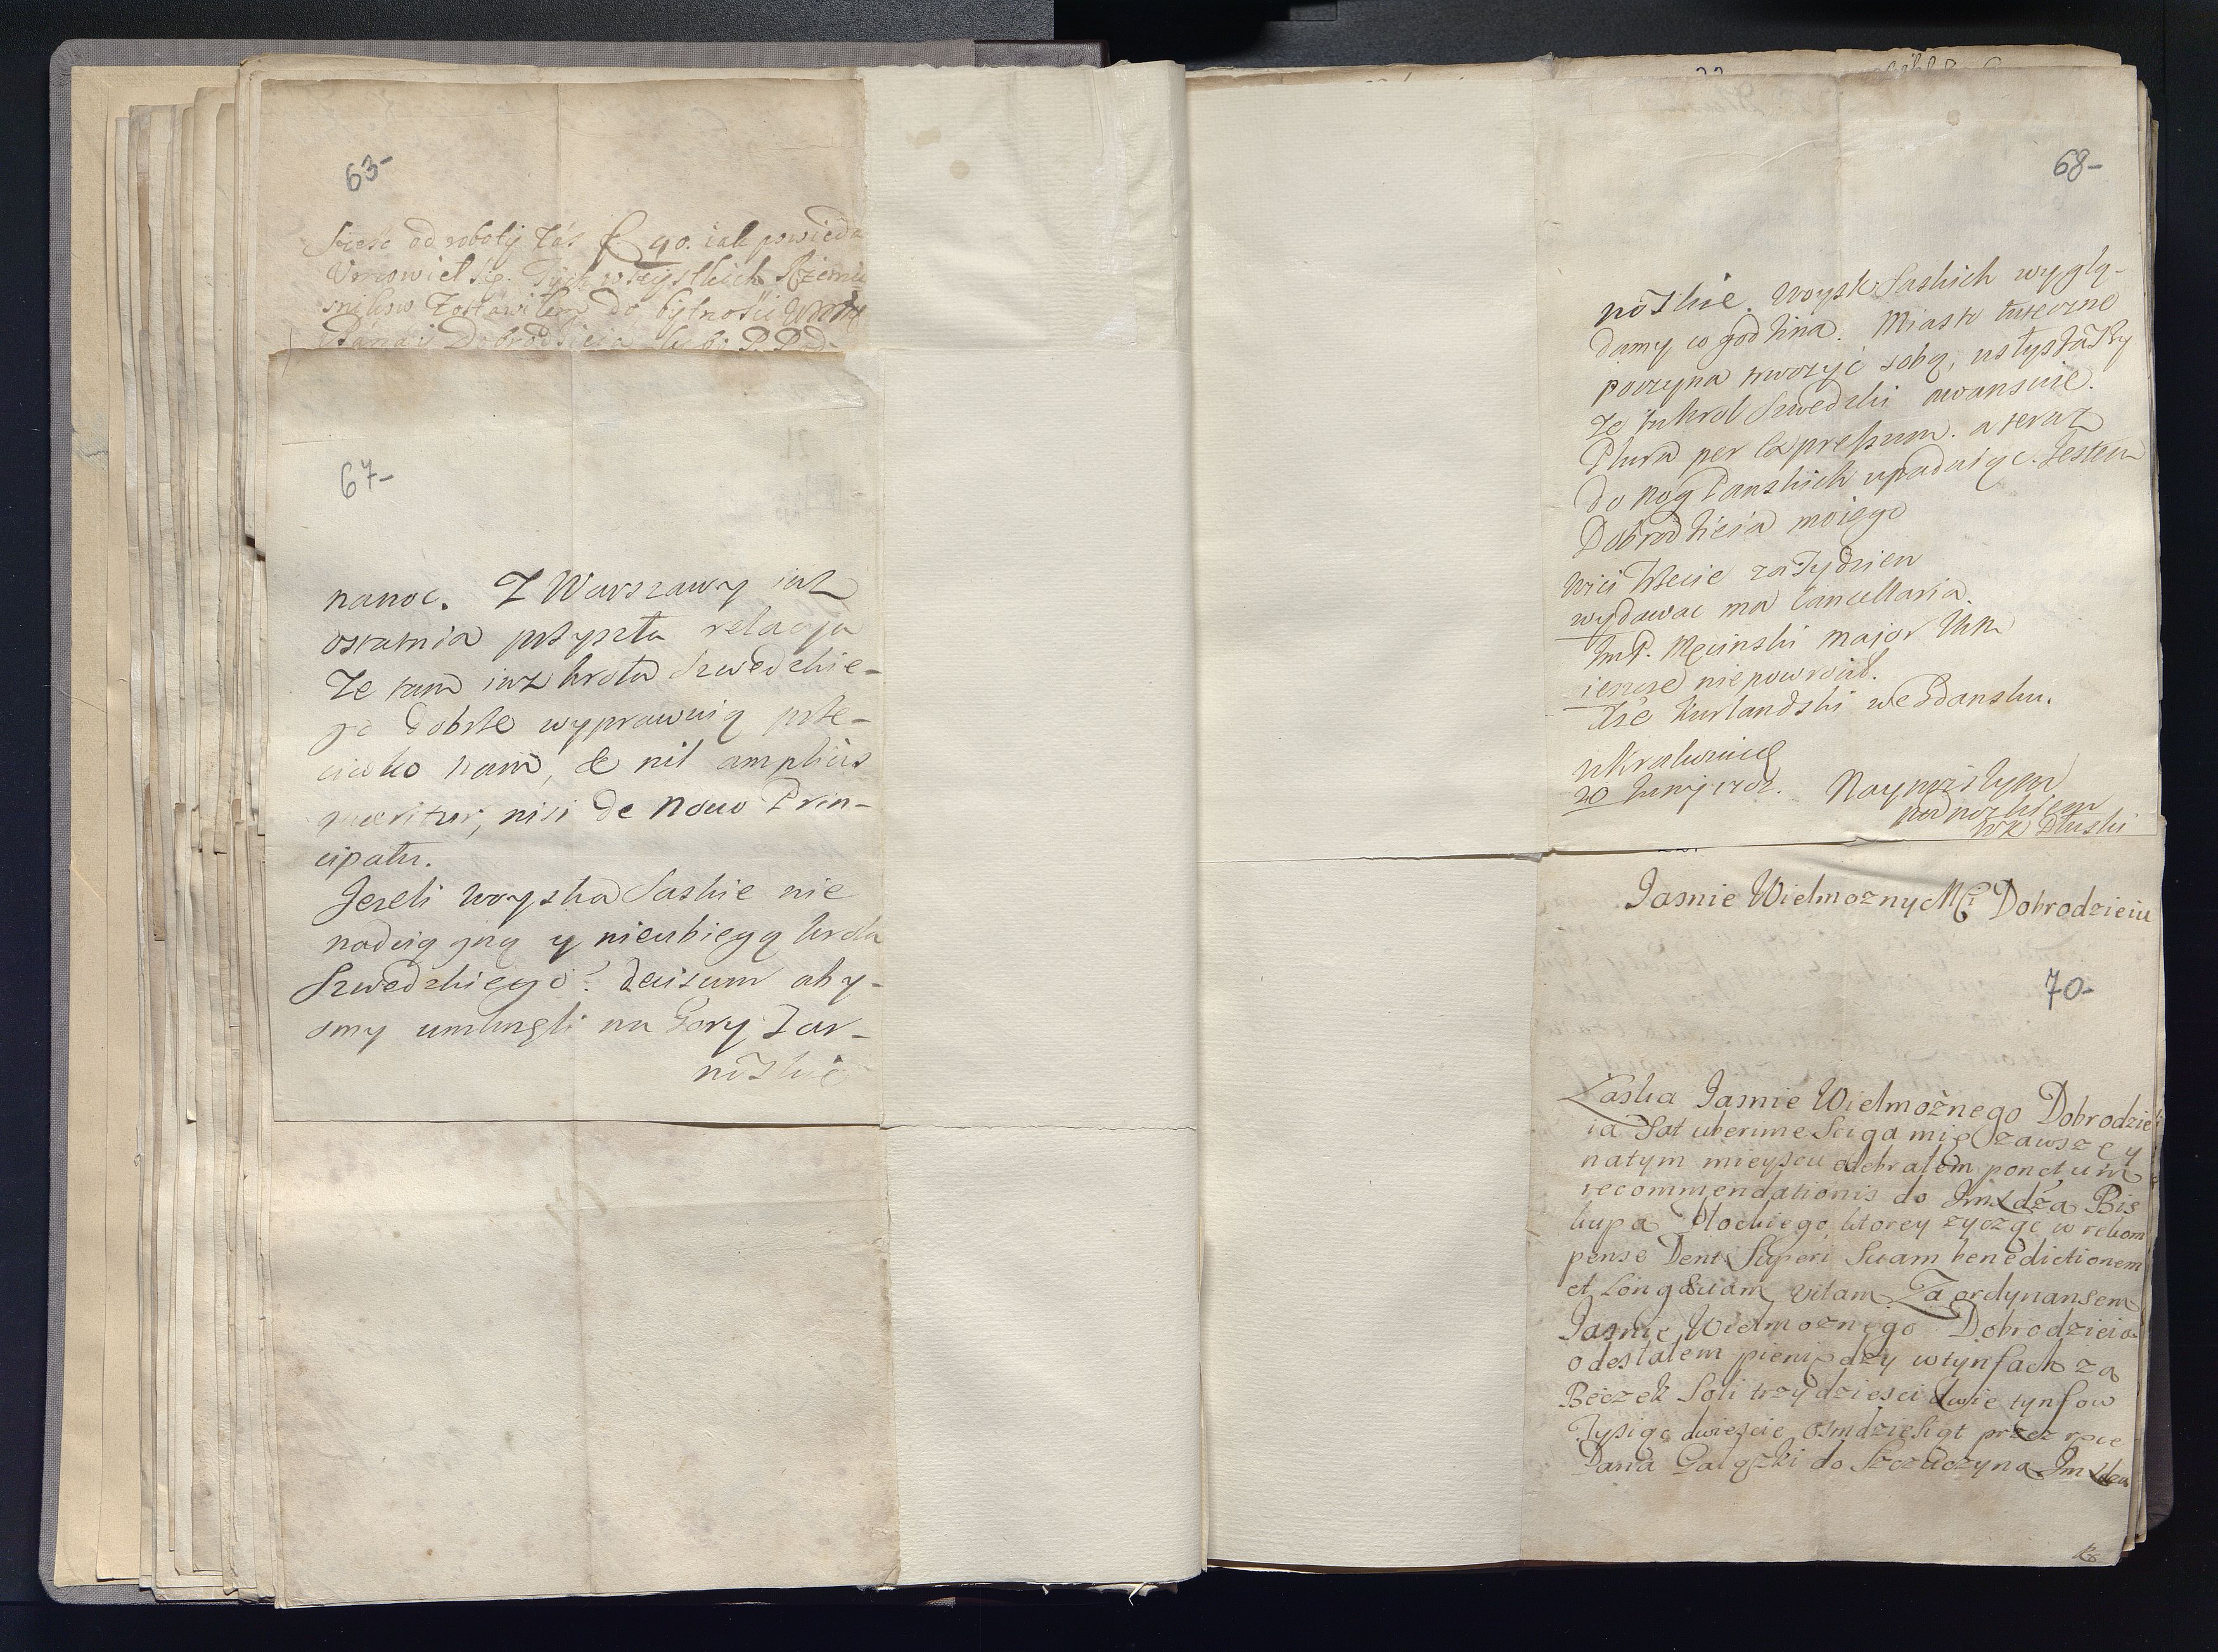 63-
sześć od roboty zaś f 40. iak powieda
Vmowieł się. Tych wszystkich Rzemie
snikow Zostawiłem do bytnosci
Pana i Dobrodzieia
67-
nanoc. Z Warszawy iuz
ostatnia przyszła relacyja
Ze tam iuz krola Szwedzkie-
go dobrze wyprawuią prze-
ciwko nam, & nil amplius
quæritur, nisi de Novo Prin-
cipatu.
Jezeli woyska Saskie nie
nadciągną y nieubiegą krola
Szwedzkiego? decisum aby-
smy umknęli na Gory Tar-
nowskie
68-
nowskie. Woysk Saskich wyglą-
damy co godzina. Miasto tuteczne
poczyna trwozyć sobą, usłyszawszy
Ze tu krol Szwedzki awansuie.
Plura per Expressum. a teraz
do Nog Panskich upadaiąc. Jestem
Dobrodzieia moiego
Wici Trzecie za Tydzien
wydawac ma Cancellaria.
ImP. Męcinski major
ieszcze niepowrocił.
Xże Kurlandzki we Gdansku.
w Krakowie
20 Junij 1702. Naynizszym
podnozkiem
Dłuski
Jasnie Wielmozny Mći Dobrodzieiu
70-
Łaska Jasnie Wielmożnego Dobrodziei
ia Sat uberime Sciga mię zawsze y
natym mieyscu odebrałem ponctum
recommendationis do Jm Xdza Bis
kupa Płockiego, ktorey zycząc w rekom
pense Dent Superi Suam benedictionem
et Longævam vitam Za ordynansem
Jasnie Wielmoznego Dobrodzieia
odesłałem pieniędzy w tynfach za
Beczek Soli trzydziesci dwie tynfow
Tysiąc dwiescie osmdziesiąt przez ręce
Pana do Szczuczyna Jm Xdza